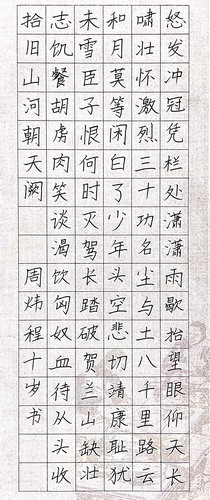 怒发冲冠凭栏处潇潇雨歇抬望眼仰天长
啸壮怀激烈三十功名尘与土八千里路云
和月莫等闲白了少年头空悲切靖康耻犹
未雪臣子恨何时灭驾长踏破贺兰山缺壮
志饥餐胡虏肉笑谈渴饮匈奴血待从头收
拾旧山河朝天阙
周炜程十岁书